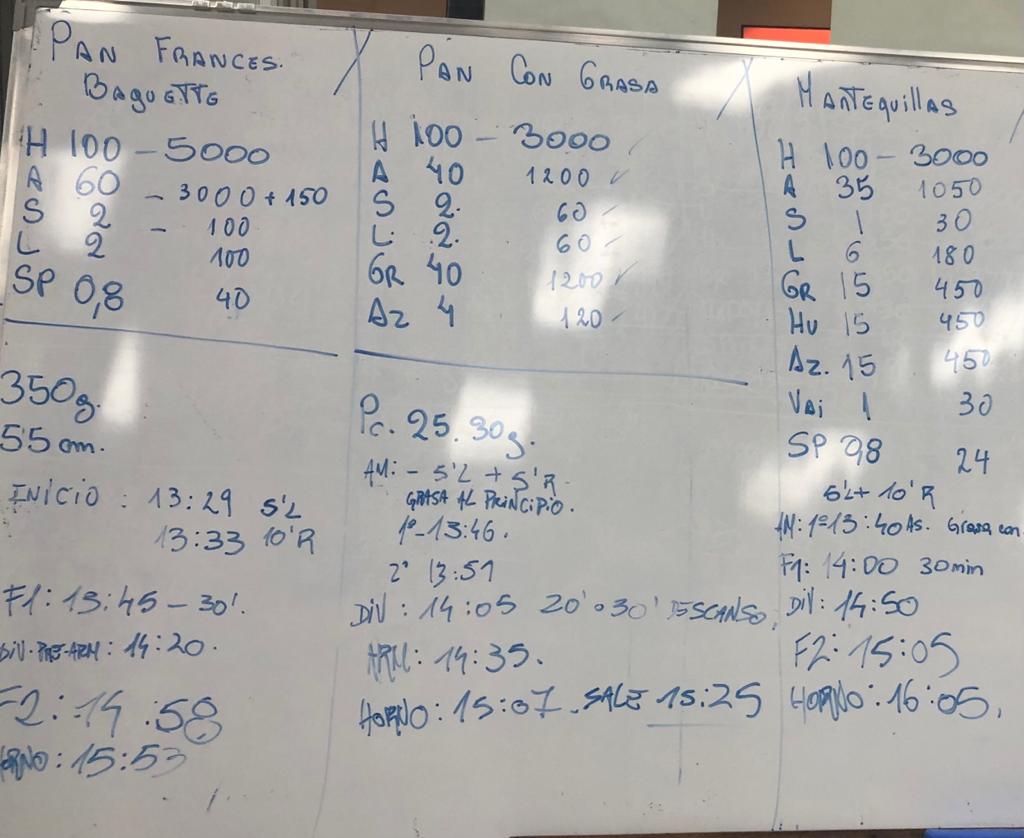 PAN FRANCES.
BAGUETTE
H 100 - 5000
A 60 - 3000 + 150
S 2 - 100
L 2 100
SP 0,8 40
350g.
55 cm.
INICIO : 13:29 5'L
13:33 10'R
F1: 13:45 - 30'.
DIV. PRE-ARM: 14:20.
F2: 14:58
HORNO: 15:53
PAN CON GRASA
H 100 - 3000
A 40 1200
S 2. 60
L. 2. 60
GR 40 1200
AZ 4 120
Pc. 25.30g.
AM: - 5'L + 5'R
GRASA AL PRINCIPIO.
1º - 13:46.
2º 13:51
DIV: 14:05 20' o 30' DESCANSO.
ARM: 14:35.
HORNO: 15:07. SALE 15:25
MANTEQUILLAS
H 100 - 3000
A 35 1050
S 1 30
L 6 180
GR 15 450
HU 15 450
AZ. 15 450
VAI 1 30
SP 0,8 24
5'L + 10'R
AM: 1º 13:40 As. Grasa con
F1: 14:00 30min
DIV: 14:50
F2: 15:05
HORNO: 16:05.